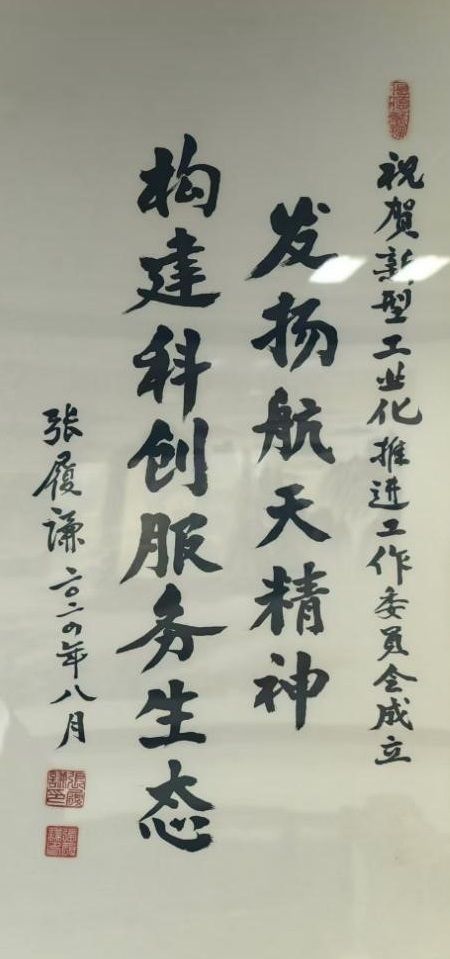 祝贺新型工业化推进工作委员会成立
发扬航天精神
构建科创服务生态
张履谦二〇二四年八月